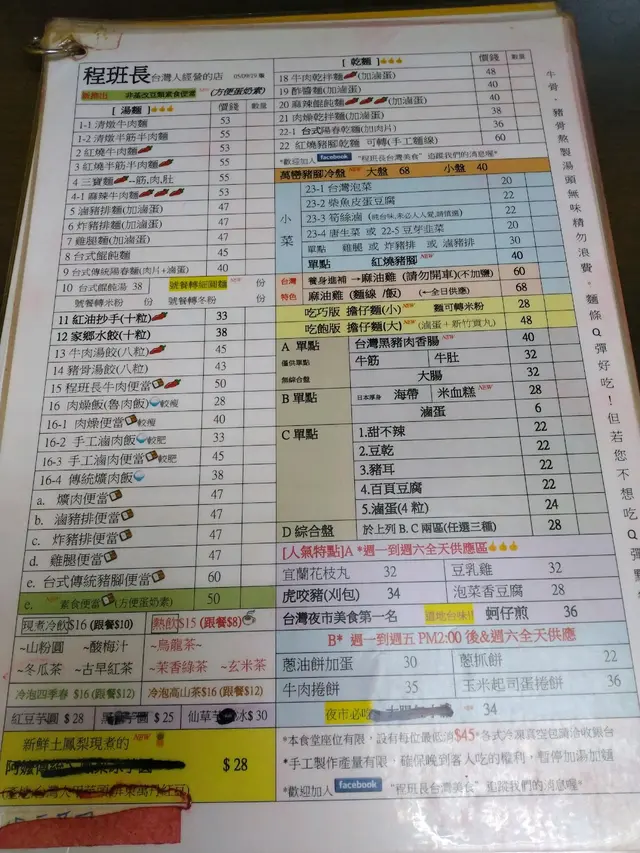 程班長台灣人經營的店
非基改豆類素食便當NEW (方便蛋奶素)
[ 湯麵 ] 價錢 數量
1-1 清燉牛肉麵 53
1-2 清燉半筋半肉麵 55
2 紅燒牛肉麵 53
3 紅燒半筋半肉麵 55
4 三寶麵--筋,肉,肚 55
4-1 麻辣牛肉麵 53
5 滷豬排麵(加滷蛋) 47
6 炸豬排麵(加滷蛋) 47
7 雞腿麵(加滷蛋) 47
8 台式餛飩麵 45
9 台式傳統陽春麵(肉片+滷蛋) 40
10 台式餛飩湯 38 號餐轉細圓麵 份
號餐轉米粉 份 號餐轉冬粉 份
11 紅油抄手(十粒) 33
12 家鄉水餃(十粒) 38
13 牛肉湯餃(八粒) 45
14 豬骨湯餃(八粒) 43
15 程班長牛肉便當 50
16 肉燥飯(魯肉飯) 較瘦 28
16-1 肉燥便當 較瘦 40
16-2 手工滷肉飯 較肥 33
16-3 手工滷肉便當 較肥 45
16-4 傳統爌肉飯 38
a. 爌肉便當 47
b. 滷豬排便當 47
c. 炸豬排便當 47
d. 雞腿便當 47
e. 台式傳統豬腳便當 60
e. 素食便當(方便蛋奶素) 50
現煮冷飲$16 (跟餐$10)
~山粉圓 ~酸梅汁
~冬瓜茶 ~古早紅茶
熱飲$15 (跟餐$8)
~烏龍茶~
~茉香綠茶 ~玄米茶
冷泡四季春 $16 (跟餐$12) 冷泡高山茶$16 (跟餐$12)
紅豆芋圓 $ 28 $ 25 仙草 冰$ 30
新鮮土鳳梨現煮的 NEW
$ 28
[ 乾麵 ] 價錢 數量
18 牛肉乾拌麵 (加滷蛋) 48
19 酢醬麵(加滷蛋) 40
20 麻辣餛飩麵 (加滷蛋) 40
21 肉燥乾拌麵(加滷蛋) 38
22-1 台式陽春乾麵(加肉片) 36
22 紅燒豬腳乾麵 可轉(手工麵線) 60
*歡迎加入 facebook "程班長台灣美食" 追蹤我們的消息喔~
萬巒豬腳冷盤NEW 大盤 68 小盤 40
小菜
23-1 台灣泡菜 20
23-2 柴魚皮蛋豆腐 22
23-3 筍絲滷 22
23-4 唐生菜 或 22-5 豆芽韭菜 20
單點 雞腿 或 炸豬排 或 滷豬排 30
單點 紅燒豬腳NEW 40
台灣特色
養身進補 → 麻油雞 (請勿開車)(不加鹽) 60
麻油雞 (麵線 /飯) (←全日供應) 68
吃巧版 擔仔麵(小) 麵可轉米粉 28
吃飽版 擔仔麵(大) (滷蛋+新竹貢丸) 48
A 單點 台灣黑豬肉香腸 40
僅供單點 牛筋 牛肚 32
無綜合盤 大腸 32
B 單點 日本厚身 海帶 米血糕NEW 28
滷蛋 6
C 單點 1.甜不辣 22
2.豆乾 22
3.豬耳 22
4.百頁豆腐 22
5.滷蛋(4 粒) 24
D 綜合盤 於上列 B. C 兩區(任選三種) 28
[人氣特點]A *週一到週六全天供應區
宜蘭花枝丸 32 豆乳雞 32
虎咬豬(刈包) 34 泡菜香豆腐 28
台灣夜市美食第一名 道地台味!! 蚵仔煎 36
B* 週一到週五 PM2:00 後&週六全天供應
蔥油餅加蛋 30 蔥抓餅 22
牛肉捲餅 35 玉米起司蛋捲餅 36
夜市必吃 34
*本食堂座位有限,設有每位最低消$45*各式冷凍真空包請洽收銀台
*手工製作產量有限,確保晚到客人吃的權利,暫停加湯加麵
*歡迎加入 facebook "程班長台灣美食" 追蹤我們的消息喔~
牛骨、豬骨熬製湯頭無味精勿浪費,麵條Q彈好吃!但若您不想吃Q